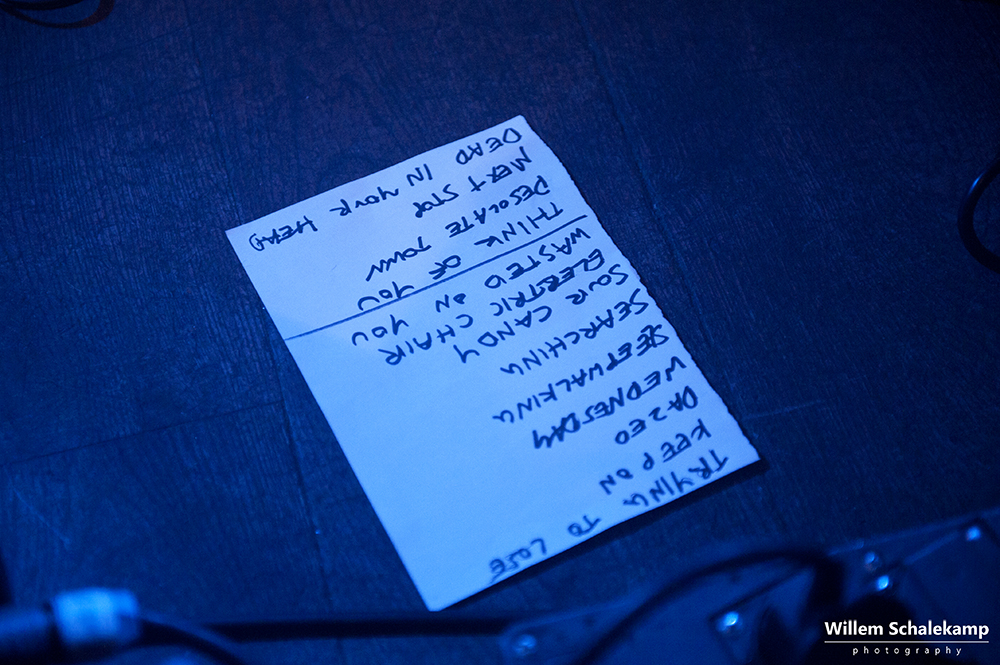 TRYING TO LOSE
KEEP ON
DAZED
WEDNESDAY
SLEEPWALKING
SEARCHING
SOUR CANDY
ELECTRIC CHAIR
WASTED ON YOU
THINK OF YOU
DESOLATE TOWN
NEXT STOP
DEAD IN YOUR HEAD
Willem Schalekamp
photography